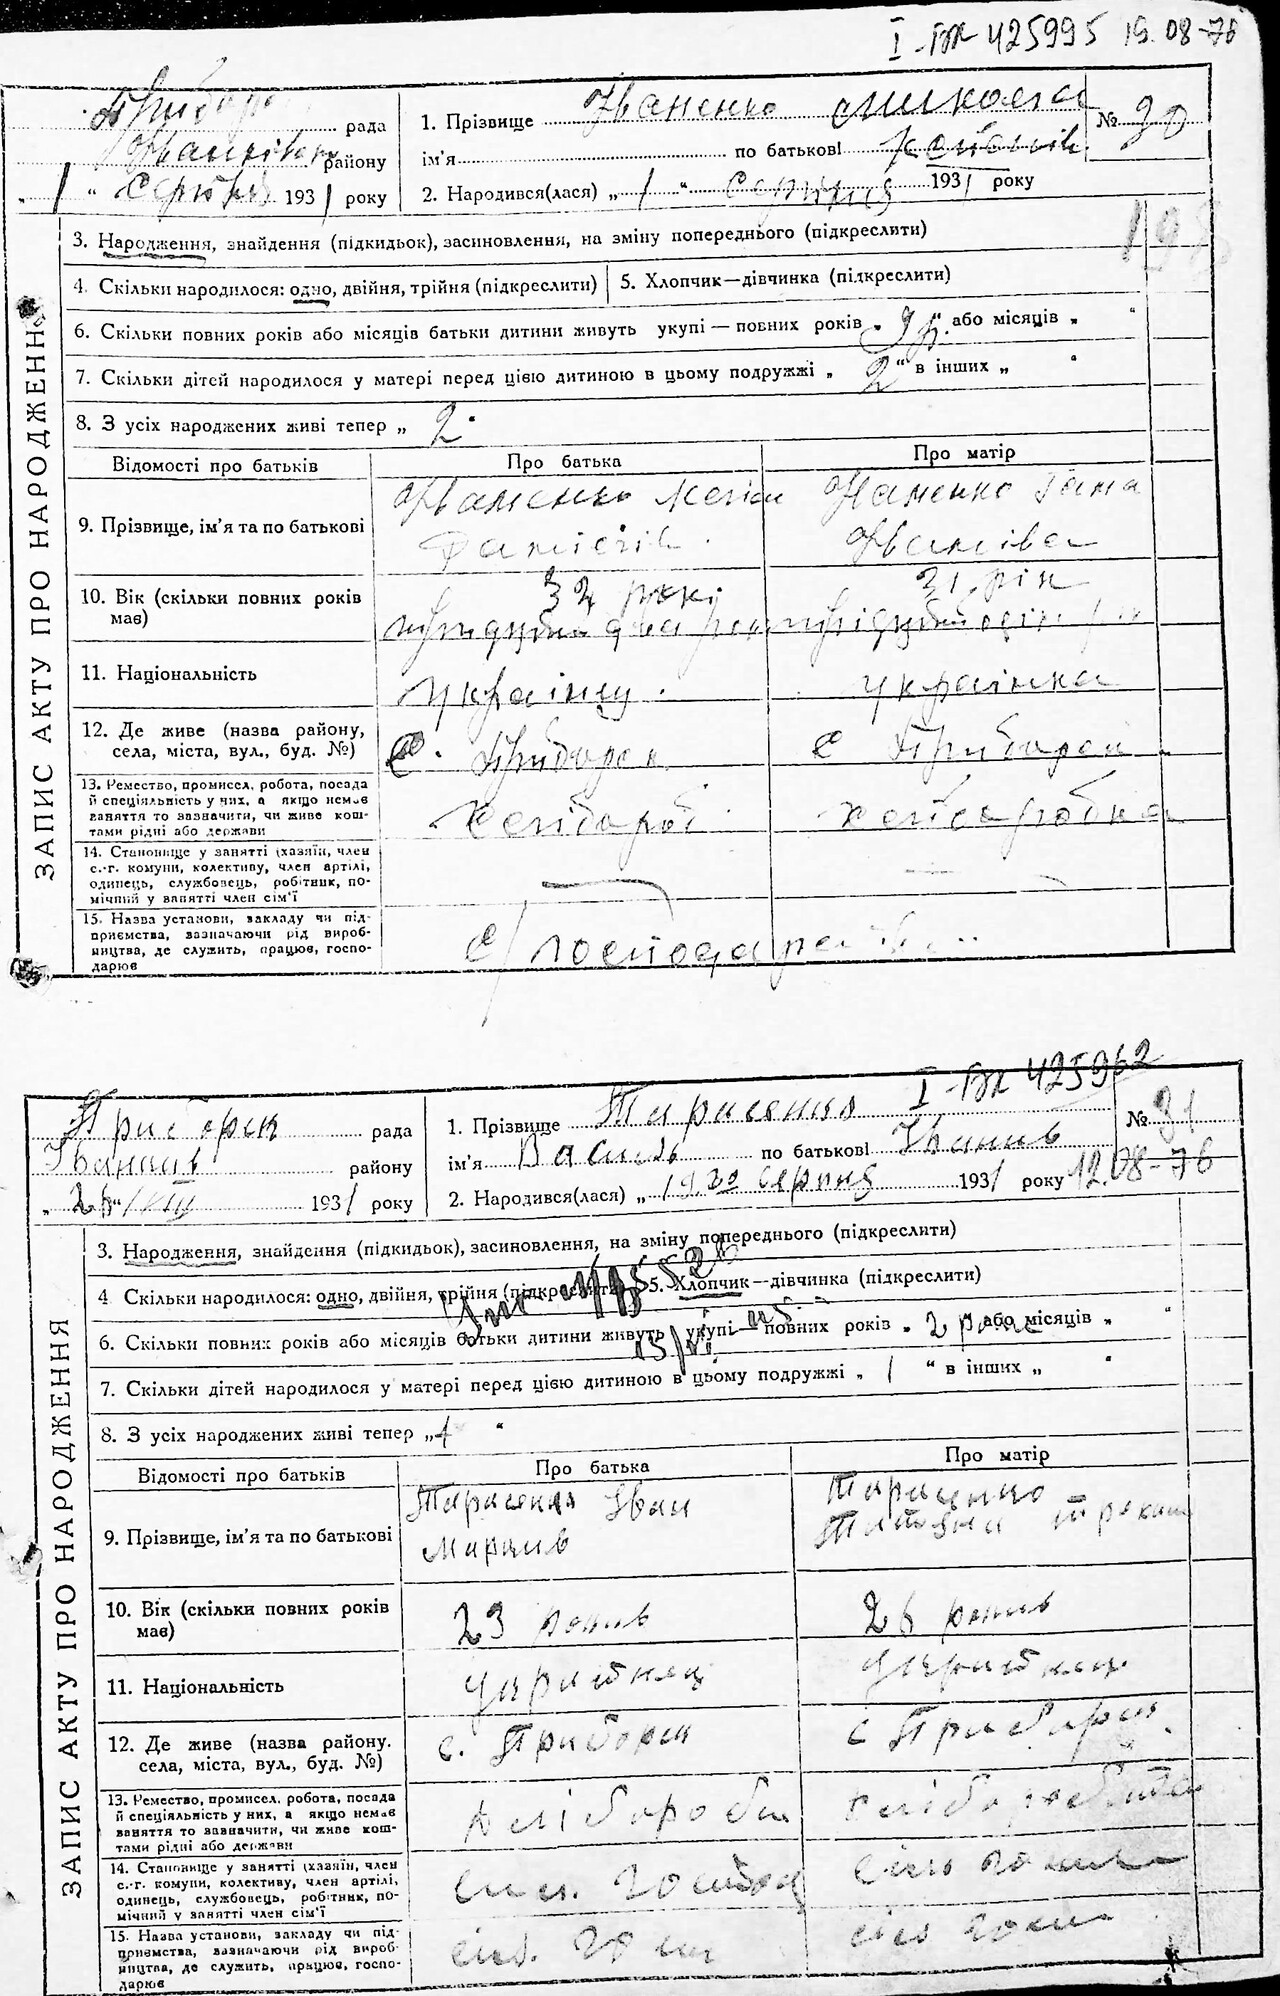 I-БК 425995 19.08-76
рада
району
" 1 " Серпня 1931 року
1. Прізвище Іваненко Микола
ім'я по батькові
№ 30
2. Народився(лася) „ 1 " Серпня 1931 року
ЗАПИС АКТУ ПРО НАРОДЖЕННЯ
3. Народження, знайдення (підкидьок), засиновлення, на зміну попереднього (підкреслити)
4. Скільки народилося: одно, двійня, трійня (підкреслити)
5. Хлопчик—дівчинка (підкреслити)
6. Скільки повних років або місяців батьки дитини живуть укупі — повних років „ 9 р. " або місяців „ "
7. Скільки дітей народилося у матері перед цією дитиною в цьому подружжі „ 2 " в інших „ "
8. З усіх народжених живі тепер „ 2 "
Відомості про батьків
Про батька
Про матір
9. Прізвище, ім'я та по батькові
Іваненко
Іваненко Ганна
Іванівна
10. Вік (скільки повних років
має)
32 роки
31 рік
11. Національність
українец
українка
12. Де живе (назва району,
села, міста, вул., буд. №)
с. Приборск
с Приборск
13. Ремество, промисел, робота, посада
й спеціяльність у них, а якщо немає
заняття то зазначити, чи живе кош-
тами рідні або держави
хлібороб
14. Становище у занятті (хазяїн, член
с.-г. комуни, колективу, член артілі,
одинець, службовець, робітник, по-
мічний у занятті член сім'ї
15. Назва установи, закладу чи під-
приємства, зазначаючи рід вироб-
ництва, де служить, працює, госпо-
дарює
с/господарство
I-БК 425962
Приборск рада
району
" 26 " VIII 1931 року
1. Прізвище Тарасенко
ім'я Василь по батькові Іванив
№ 31
2. Народився(лася) „ 19.го серпня 1931 року
12.08-76
ЗАПИС АКТУ ПРО НАРОДЖЕННЯ
3. Народження, знайдення (підкидьок), засиновлення, на зміну попереднього (підкреслити)
4 Скільки народилося: одно, двійня, трійня (підкреслити)
5. Хлопчик—дівчинка (підкреслити)
6. Скільки повних років або місяців батьки дитини живуть укупі — повних років „ 2 роки " або місяців „ "
7. Скільки дітей народилося у матері перед цією дитиною в цьому подружжі „ 1 " в інших „ "
8. З усіх народжених живі тепер „ 1 "
Відомості про батьків
Про батька
Про матір
9. Прізвище, ім'я та по батькові
Тарасенко Іван
Маркив
Тарасенко
Титяна
10. Вік (скільки повних років
має)
23 рокив
26 рокив
11. Національність
12. Де живе (назва району.
села, міста, вул., буд. №)
с. Приборск
с Приборск
13. Ремество, промисел, робота, посада
й спеціяльність у них, а якщо немає
заняття то зазначити, чи живе кош-
тами рідні або держави
хлібороб
14. Становище у занятті (хазяїн, член
с.-г. комуни, колективу, член артілі,
одинець, службовець, робітник, по-
мічний у занятті член сім'ї
15. Назва установи, закладу чи під-
приємства, зазначаючи рід вироб-
ництва, де служить, працює, госпо-
дарює